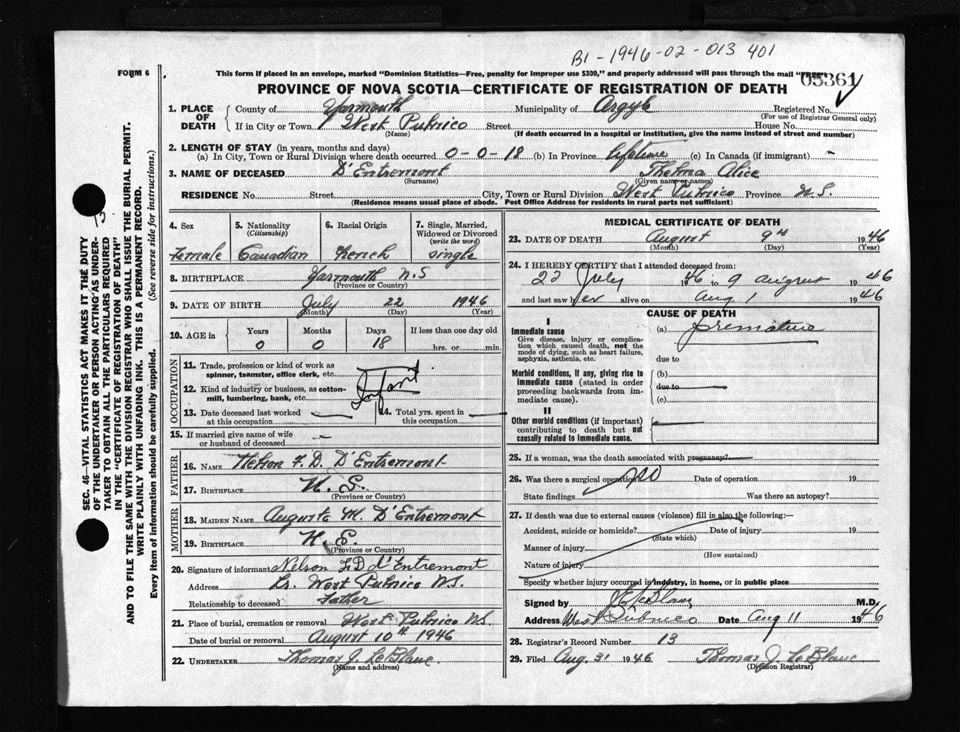 B1-1946-02-013401
FORM 6
This form if placed in an envelope, marked "Dominion Statistics—Free, penalty for improper use $300," and properly addressed will pass through the mail "FREE"
05361
PROVINCE OF NOVA SCOTIA—CERTIFICATE OF REGISTRATION OF DEATH
SEC. 46—VITAL STATISTICS ACT MAKES IT THE DUTY
OF THE UNDERTAKER OR PERSON ACTING AS UNDER-
TAKER TO OBTAIN ALL THE PARTICULARS REQUIRED
IN THE "CERTIFICATE OF REGISTRATION OF DEATH"
AND TO FILE THE SAME WITH THE DIVISION REGISTRAR WHO SHALL ISSUE THE BURIAL PERMIT.
WRITE PLAINLY WITH UNFADING INK. THIS IS A PERMANENT RECORD.
Every item of information should be carefully supplied. (See reverse side for instructions.)
1. PLACE OF DEATH County of Yarmouth Municipality of Argyle Registered No.
(For use of Registrar General only)
If in City or Town West Pubnico Street House No.
(Name) (If death occurred in a hospital or institution, give the name instead of street and number)
2. LENGTH OF STAY (in years, months and days)
(a) In City, Town or Rural Division where death occurred 0-0-18 (b) In Province lifetime (c) In Canada (if immigrant) -
3. NAME OF DECEASED D'Entremont Thelma Alice
(Surname) (Given name or names)
RESIDENCE No. Street City, Town or Rural Division West Pubnico Province N.S.
(Residence means usual place of abode. Post Office Address for residents in rural parts not sufficient)
4. Sex 5. Nationality (Citizenship) 6. Racial Origin 7. Single, Married, Widowed or Divorced (write the word)
Female Canadian French single
8. BIRTHPLACE Yarmouth N.S
(Province or Country)
9. DATE OF BIRTH July 22 1946
(Month) (Day) (Year)
10. AGE in Years Months Days If less than one day old
0 0 18 hrs. or min.
OCCUPATION
11. Trade, profession or kind of work as spinner, teamster, office clerk, etc.
Infant
12. Kind of industry or business, as cotton-mill, lumbering, bank, etc.
13. Date deceased last worked at this occupation 14. Total yrs. spent in this occupation
15. If married give name of wife or husband of deceased -
FATHER
16. NAME Nelson F. D. D'Entremont
17. BIRTHPLACE N. S.
(Province or Country)
MOTHER
18. MAIDEN NAME Auguste M. D'Entremont
19. BIRTHPLACE N. S.
(Province or Country)
20. Signature of informant Nelson F.D d'Entremont
Address Lr. West Pubnico N.S.
Relationship to deceased Father
21. Place of burial, cremation or removal West Pubnico N.S.
Date of burial or removal August 10th 1946
22. UNDERTAKER Thomas J. LeBlanc
(Name and address)
MEDICAL CERTIFICATE OF DEATH
23. DATE OF DEATH August 9th 1946
(Month) (Day) (Year)
24. I HEREBY CERTIFY that I attended deceased from:
22 July 1946 to 9 august 1946
and last saw her alive on aug 1 1946
CAUSE OF DEATH
I
Immediate cause (a) premature
Give disease, injury or complication which caused death, not the mode of dying, such as heart failure, asphyxia, asthenia, etc.
due to
Morbid conditions, if any, giving rise to immediate cause (stated in order proceeding backwards from immediate cause).
(b)
due to
(c)
II
Other morbid conditions (if important) contributing to death but not causally related to immediate cause.
25. If a woman, was the death associated with pregnancy?
26. Was there a surgical operation No Date of operation 19
State findings Was there an autopsy?
27. If death was due to external causes (violence) fill in also the following:—
Accident, suicide or homicide? Date of injury 19
(State which)
Manner of injury
(How sustained)
Nature of injury
Specify whether injury occurred in industry, in home, or in public place
Signed by LeBlanc M.D.
Address West Pubnico Date Aug 11 1946
28. Registrar's Record Number 13
29. Filed Aug. 31 1946 Thomas J. LeBlanc
(Division Registrar)